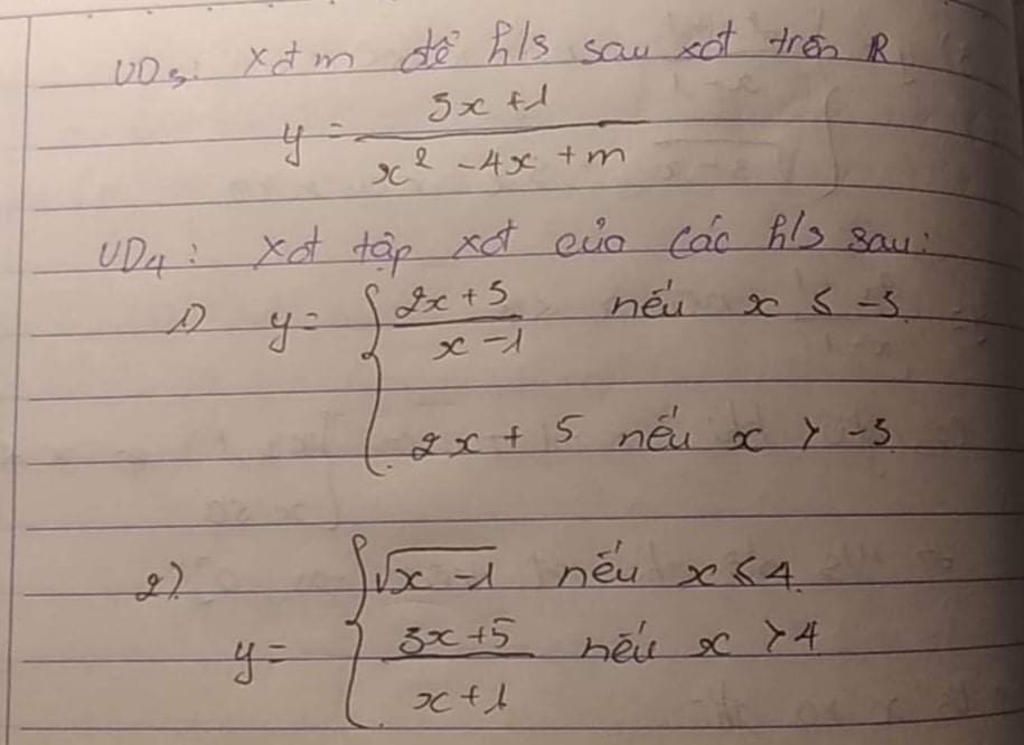 VD3: xđ m để h/s sau xđ trên R
y = (3x + 1)/(x² - 4x + m)
VD4: xđ tập xđ của các h/s sau:
1) y = { (2x + 5)/(x - 1) nếu x ≤ -3
2x + 5 nếu x > -3
2) y = { √(x - 1) nếu x ≤ 4
(3x + 5)/(x + 1) nếu x > 4